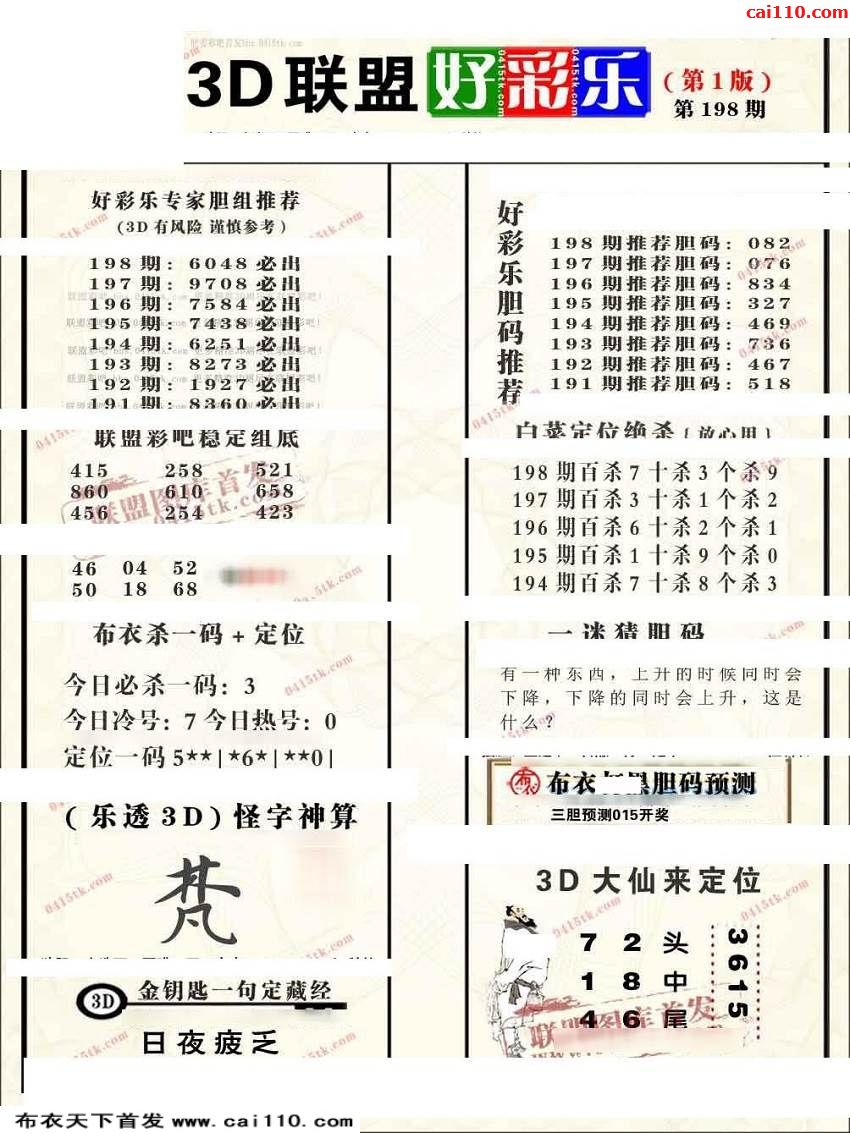 cai110.com
3D联盟 好彩乐 (第1版)
第198期
好彩乐专家胆组推荐
(3D有风险 谨慎参考)
198期: 6048必出
197期: 9708必出
196期: 7584必出
195期: 7438必出
194期: 6251必出
193期: 8273必出
192期: 1927必出
191期: 8360必出
联盟彩吧稳定组底
415 258 521
860 610 658
456 254 423
46 04 52
50 18 68
布衣杀一码+定位
今日必杀一码: 3
今日冷号: 7 今日热号: 0
定位一码 5**|*6*|**0|
(乐透3D)怪字神算
梵
3D 金钥匙一句定藏经
日夜疲乏
好彩乐胆码推荐
198期推荐胆码: 082
197期推荐胆码: 076
196期推荐胆码: 834
195期推荐胆码: 327
194期推荐胆码: 469
193期推荐胆码: 736
192期推荐胆码: 467
191期推荐胆码: 518
白菜定位绝杀{放心用}
198期百杀7十杀3个杀9
197期百杀3十杀1个杀2
196期百杀6十杀2个杀1
195期百杀1十杀9个杀0
194期百杀7十杀8个杀3
一迷猜胆码
有一种东西,上升的时候同时会
下降,下降的同时会上升,这是
什么?
布衣 胆码预测
三胆预测015开奖
3D大仙来定位
7 2 头
1 8 中
4 6 尾
3615
联盟图库首发
0415tk.com
布衣天下首发 www.cai110.com